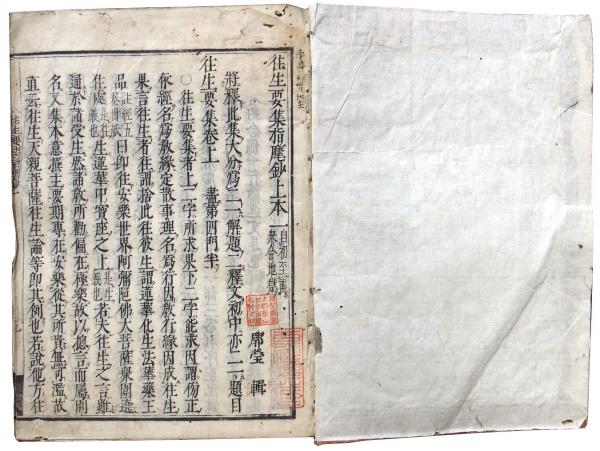 往生要集指麾鈔上本一 自初至再
衆合地獄
廓瑩 輯
將釋此集大分爲二一解題二釋文初中亦二一題目
往生要集卷上 盡第四門半
○往生要集者上二字所求果下二字能求因謂
依經名爲教緣定散事理名爲行因教行緣因成往生
果言往生者往謂捨此往彼生謂蓮華化生法華藥王
品 曰即往安樂世界阿彌陀佛大菩薩衆圍遶
住處 生蓮華中寶座之上 若夫往生之言雖
通於諸受生然諸教所勸偏在極樂故以總言而屬別
名又集本意撰主要期專在安樂從其所貴無可濫故
直云往生天親菩薩往生論等即其例也若說他方往